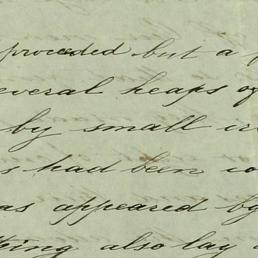 proceeded but a
several heaps of
by small
s had been co
as appeared by
thing also lay